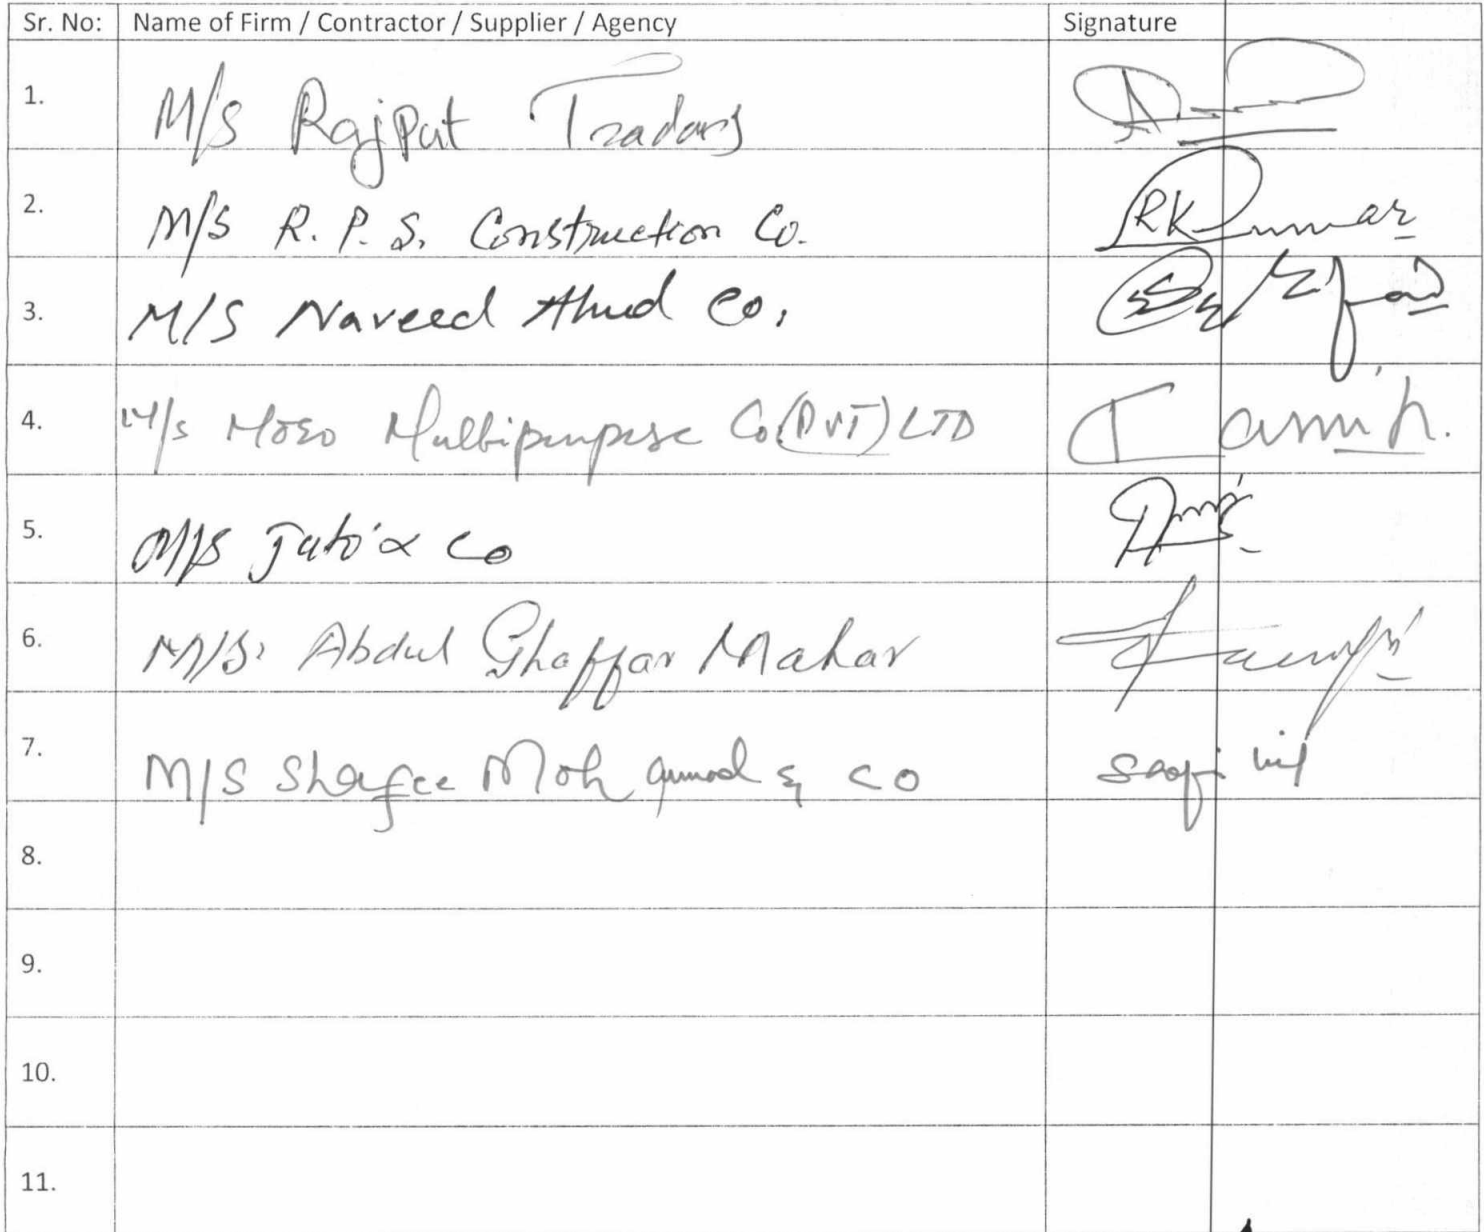 Sr. No: Name of Firm / Contractor / Supplier / Agency Signature
1. M/S Rajput Tradars
2. M/S R. P. S. Construction Co. RKumar
3. M/S Naveed Ahud Co.
4. M/s Moso Multipurpose Co (PVT) LTD
5. M/S Jatoi & Co
6. M/S. Abdul Ghaffar Mahar
7. M/S Shafee Mohammad & CO
8.
9.
10.
11.